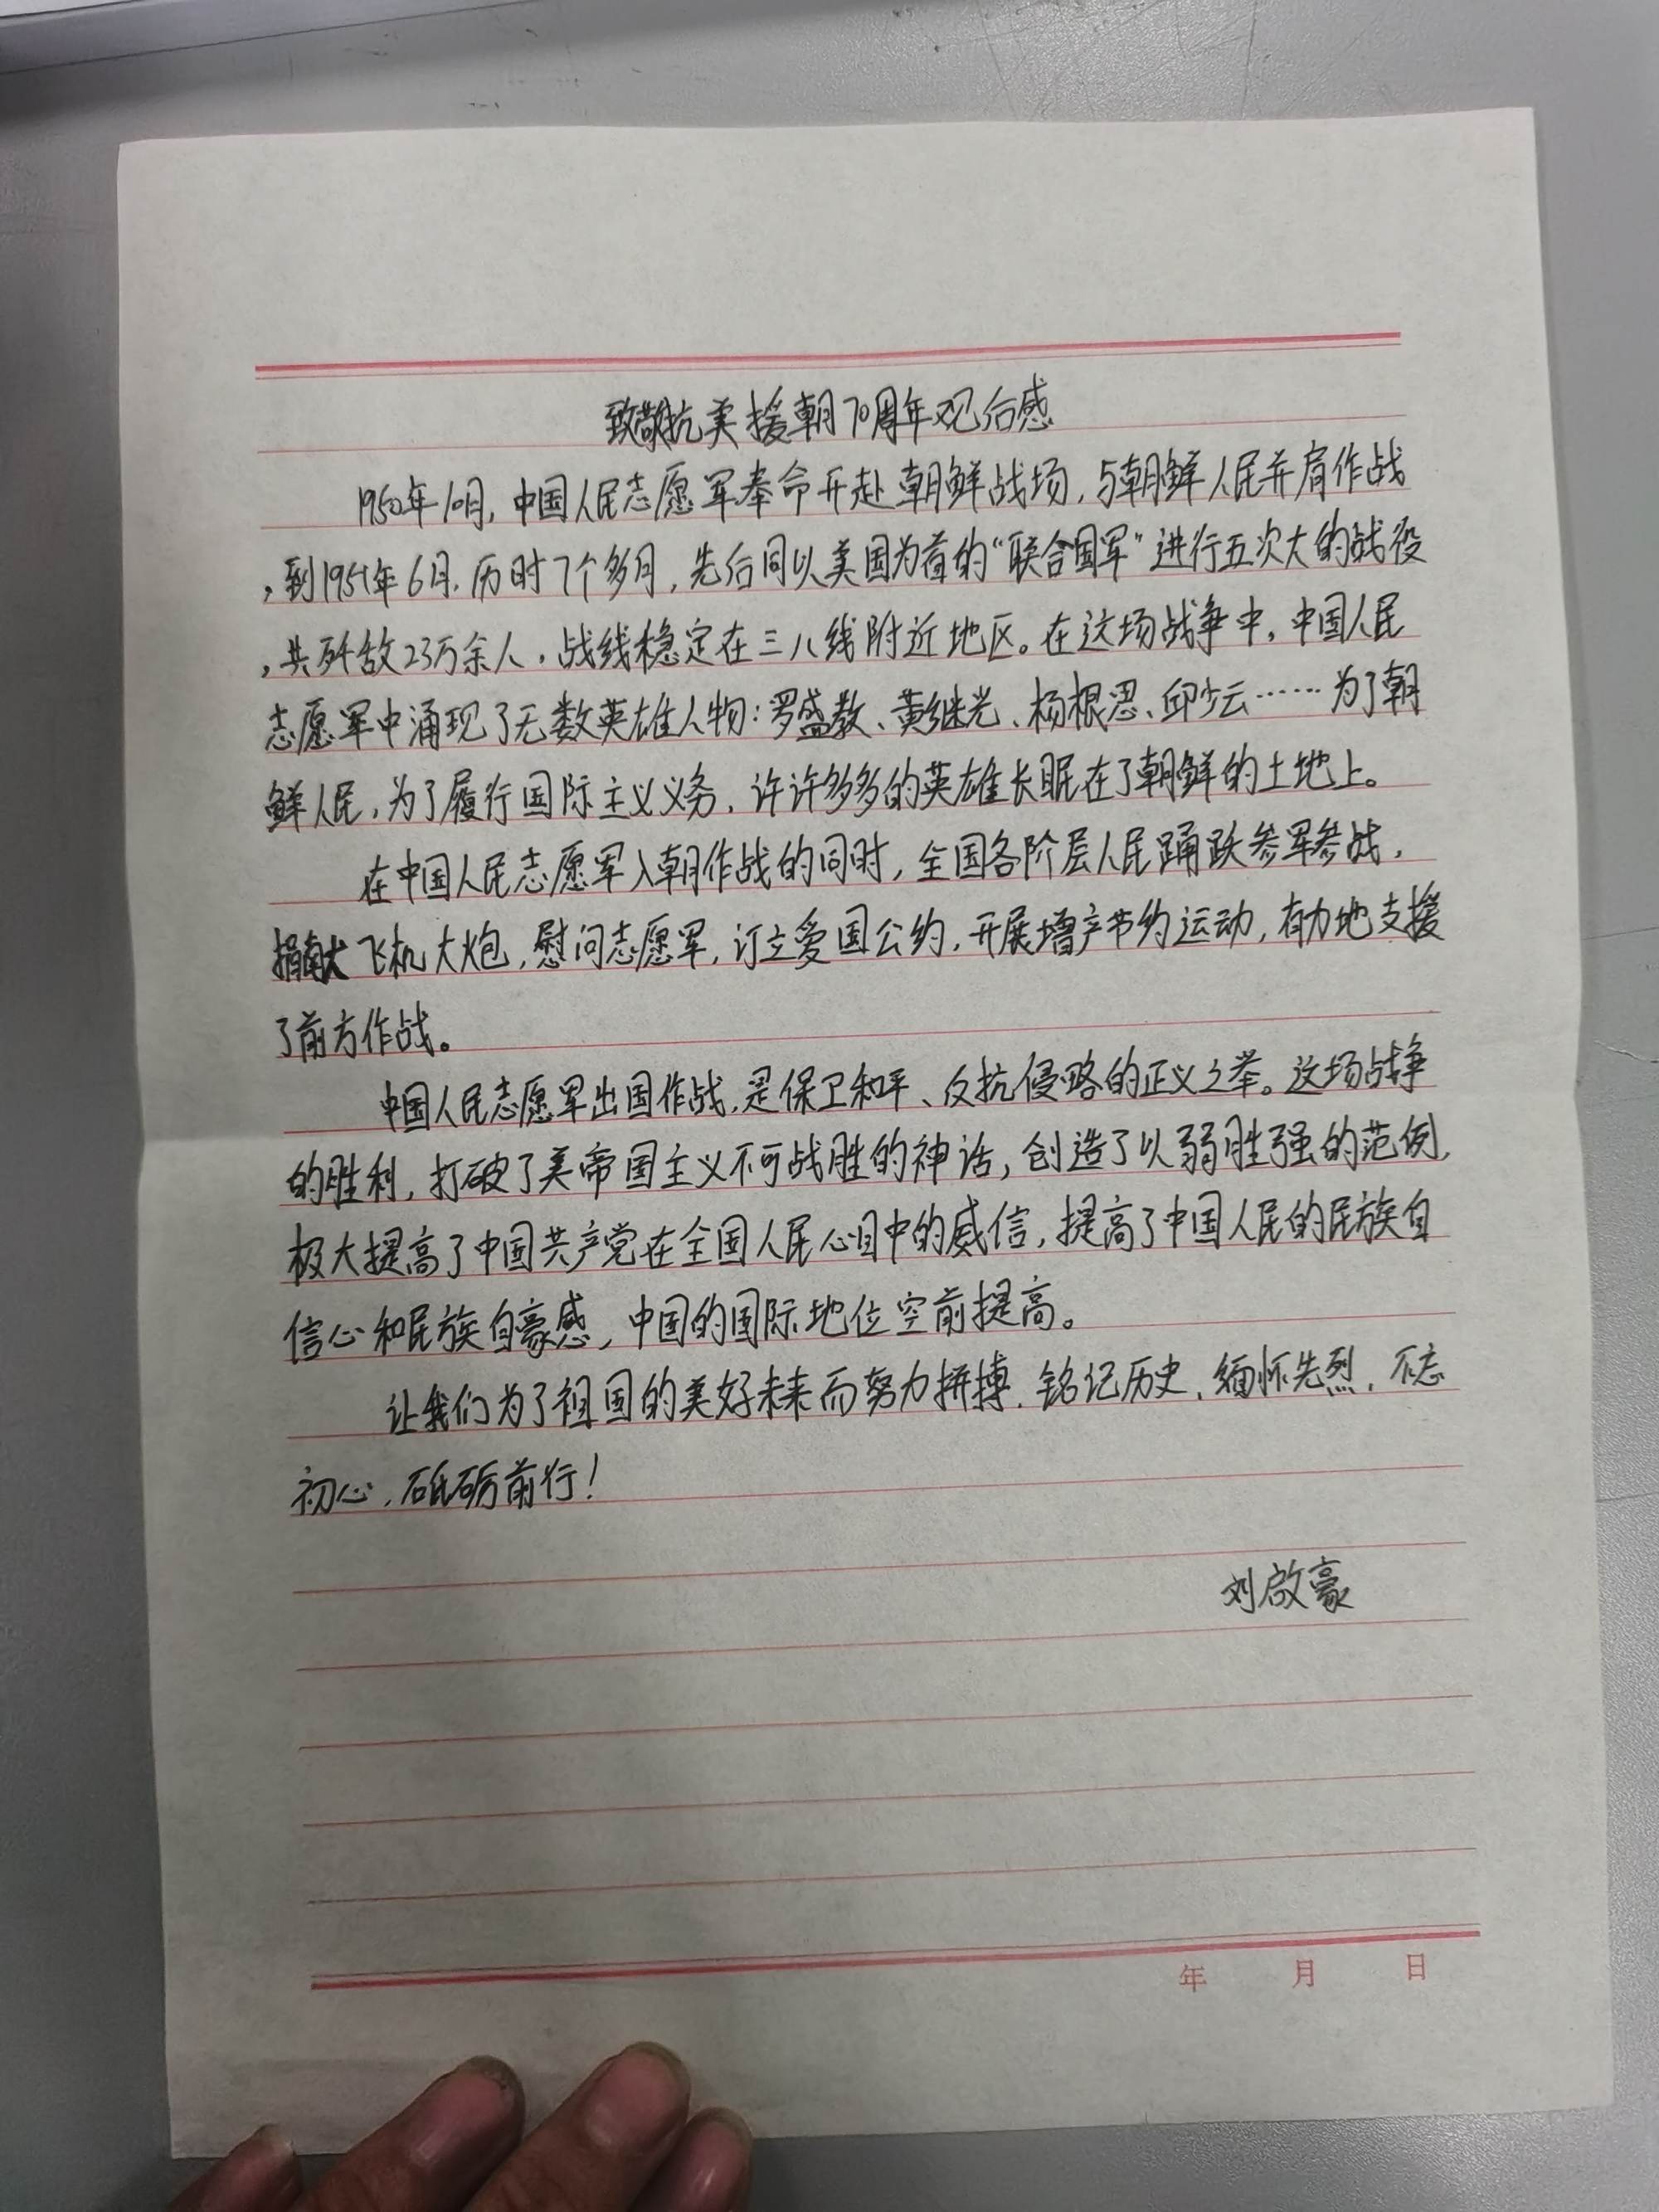 致敬抗美援朝70周年观后感
1950年10月，中国人民志愿军奉命开赴朝鲜战场，与朝鲜人民并肩作战
，到1951年6月，历时7个多月，先后同以美国为首的“联合国军”进行五次大的战役
，共歼敌23万余人，战线稳定在三八线附近地区。在这场战争中，中国人民
志愿军中涌现了无数英雄人物：罗盛教、黄继光、杨根思、邱少云……为了朝
鲜人民，为了履行国际主义义务，许许多多的英雄长眠在了朝鲜的土地上。
在中国人民志愿军入朝作战的同时，全国各阶层人民踊跃参军参战，
捐献飞机大炮，慰问志愿军，订立爱国公约，开展增产节约运动，有力地支援
了前方作战。
中国人民志愿军出国作战，是保卫和平、反抗侵略的正义之举。这场战争
的胜利，打破了美帝国主义不可战胜的神话，创造了以弱胜强的范例，
极大提高了中国共产党在全国人民心目中的威信，提高了中国人民的民族自
信心和民族自豪感，中国的国际地位空前提高。
让我们为了祖国的美好未来而努力拼搏，铭记历史，缅怀先烈，不忘
初心，砥砺前行！
刘啟豪
年 月 日